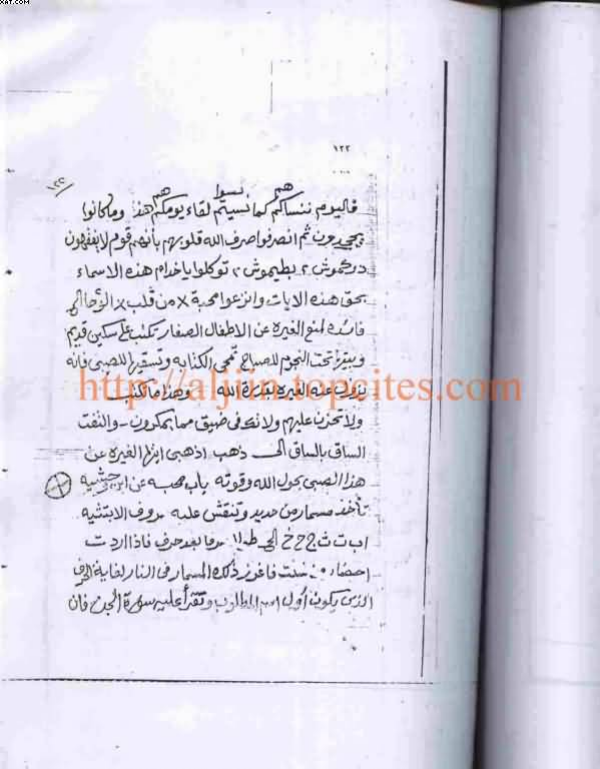 XAT.COM
١٢٢
١٢٢
هم نسوا هم
فاليوم ننساكم كما نسيتم لقاء يومكم هذا وما كانوا
يجحدون ثم انصرفوا صرف الله قلوبهم بأنهم قوم لا يفقهون
دركموش ٢ بطيموش ٢ توكلوا يا خدام هذه الاسماء
بحق هذه الايات وانزعوا محبة x من قلب x الوحا الخ
فائده لمنع الغيره عن الاطفال الصغار تكتب على سكين قديم
وبيتر تحت النجوم للصباح تمحي الكتابه وتسقيها للصبي فانه
http://aljiin.topcites.com
عنه الغيره بقدرة الله وهذا ما تكتب
ولا تحزن عليهم ولا تك في ضيق مما يمكرون - والتفت
الساق بالساق الى ذهب اذهبي ايتها الغيره عن
هذا الصبي بحول الله وقوته باب محبه عن ابن وحشيه
تأخذ مسمار من حديد وتنقش عليه حروف الابتثيه
ا ب ت ث ج ح خ الى حرفا بعد حرف فاذا اردت
احضار من شئت فاغرز ذلك المسمار في النار لغاية الحرف
الذي يكون أول اسم المطلوب وتقرأ عليه سورة الجن فان